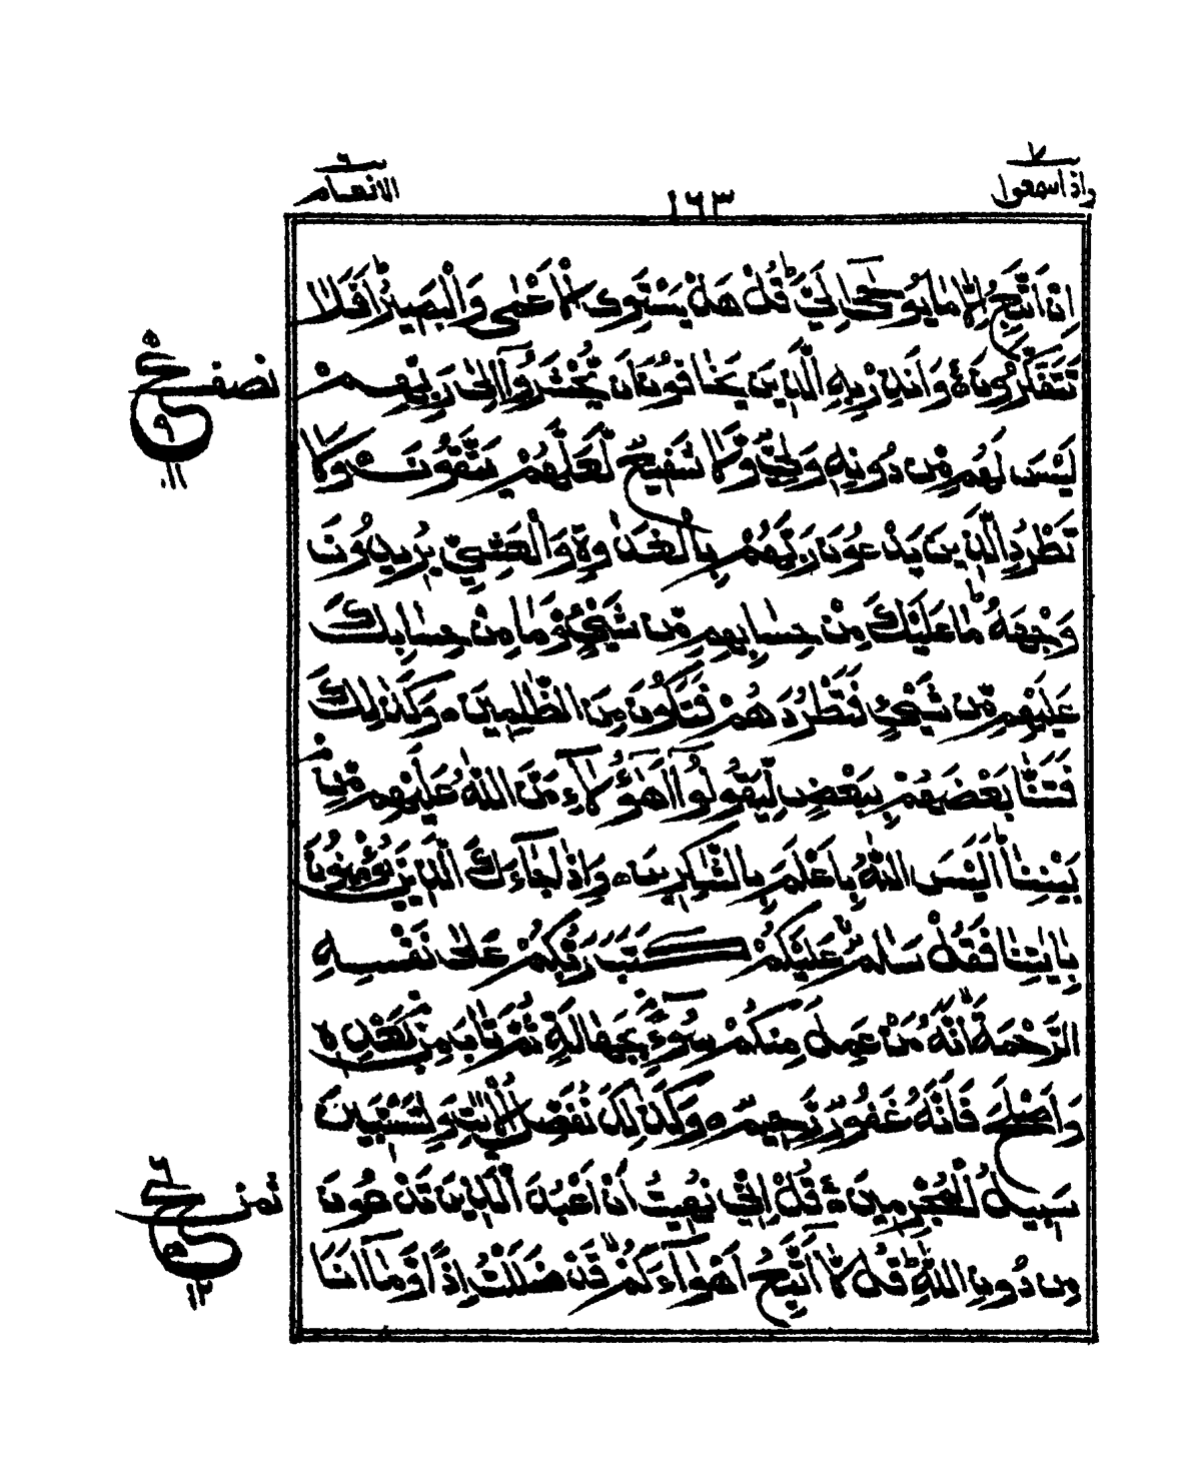 ٧
واذاسمعوا
١٦٣
٦
الانعام
اِنْ اَتَّبِعُ اِلَّا مَا يُوْحٰۤى اِلَيَّ ؕ قُلْ هَلْ يَسْتَوِى الْاَعْمٰى وَالْبَصِيْرُ ؕ اَفَلَا
تَتَفَكَّرُوْنَ ۠ وَاَنْذِرْ بِهِ الَّذِيْنَ يَخَافُوْنَ اَنْ يُّحْشَرُوْۤا اِلٰى رَبِّهِمْ
لَيْسَ لَهُمْ مِّنْ دُوْنِهٖ وَلِيٌّ وَّلَا شَفِيْعٌ لَّعَلَّهُمْ يَتَّقُوْنَ ۝ وَلَا
تَطْرُدِ الَّذِيْنَ يَدْعُوْنَ رَبَّهُمْ بِالْغَدٰوةِ وَالْعَشِيِّ يُرِيْدُوْنَ
وَجْهَهٗ ؕ مَا عَلَيْكَ مِنْ حِسَابِهِمْ مِّنْ شَيْءٍ وَّمَا مِنْ حِسَابِكَ
عَلَيْهِمْ مِّنْ شَيْءٍ فَتَطْرُدَهُمْ فَتَكُوْنَ مِنَ الظّٰلِمِيْنَ ۝ وَكَذٰلِكَ
فَتَنَّا بَعْضَهُمْ بِبَعْضٍ لِّيَقُوْلُوْۤا اَهٰۤؤُلَآءِ مَنَّ اللّٰهُ عَلَيْهِمْ مِّنْۢ
بَيْنِنَا ؕ اَلَيْسَ اللّٰهُ بِاَعْلَمَ بِالشّٰكِرِيْنَ ۝ وَاِذَا جَآءَكَ الَّذِيْنَ يُؤْمِنُوْنَ
بِاٰيٰتِنَا فَقُلْ سَلٰمٌ عَلَيْكُمْ كَتَبَ رَبُّكُمْ عَلٰى نَفْسِهِ
الرَّحْمَةَ ۙ اَنَّهٗ مَنْ عَمِلَ مِنْكُمْ سُوْٓءًۢا بِجَهَالَةٍ ثُمَّ تَابَ مِنْۢ بَعْدِهٖ
وَاَصْلَحَ فَاَنَّهٗ غَفُوْرٌ رَّحِيْمٌ ۝ وَكَذٰلِكَ نُفَصِّلُ الْاٰيٰتِ وَلِتَسْتَبِيْنَ
سَبِيْلُ الْمُجْرِمِيْنَ ۠ قُلْ اِنِّيْ نُهِيْتُ اَنْ اَعْبُدَ الَّذِيْنَ تَدْعُوْنَ
مِنْ دُوْنِ اللّٰهِ ؕ قُلْ لَّاۤ اَتَّبِعُ اَهْوَآءَكُمْ ۙ قَدْ ضَلَلْتُ اِذًا وَّمَاۤ اَنَا
نصف
ع
٥
٩
١١
ثمن
ع
٦
٥
١٢